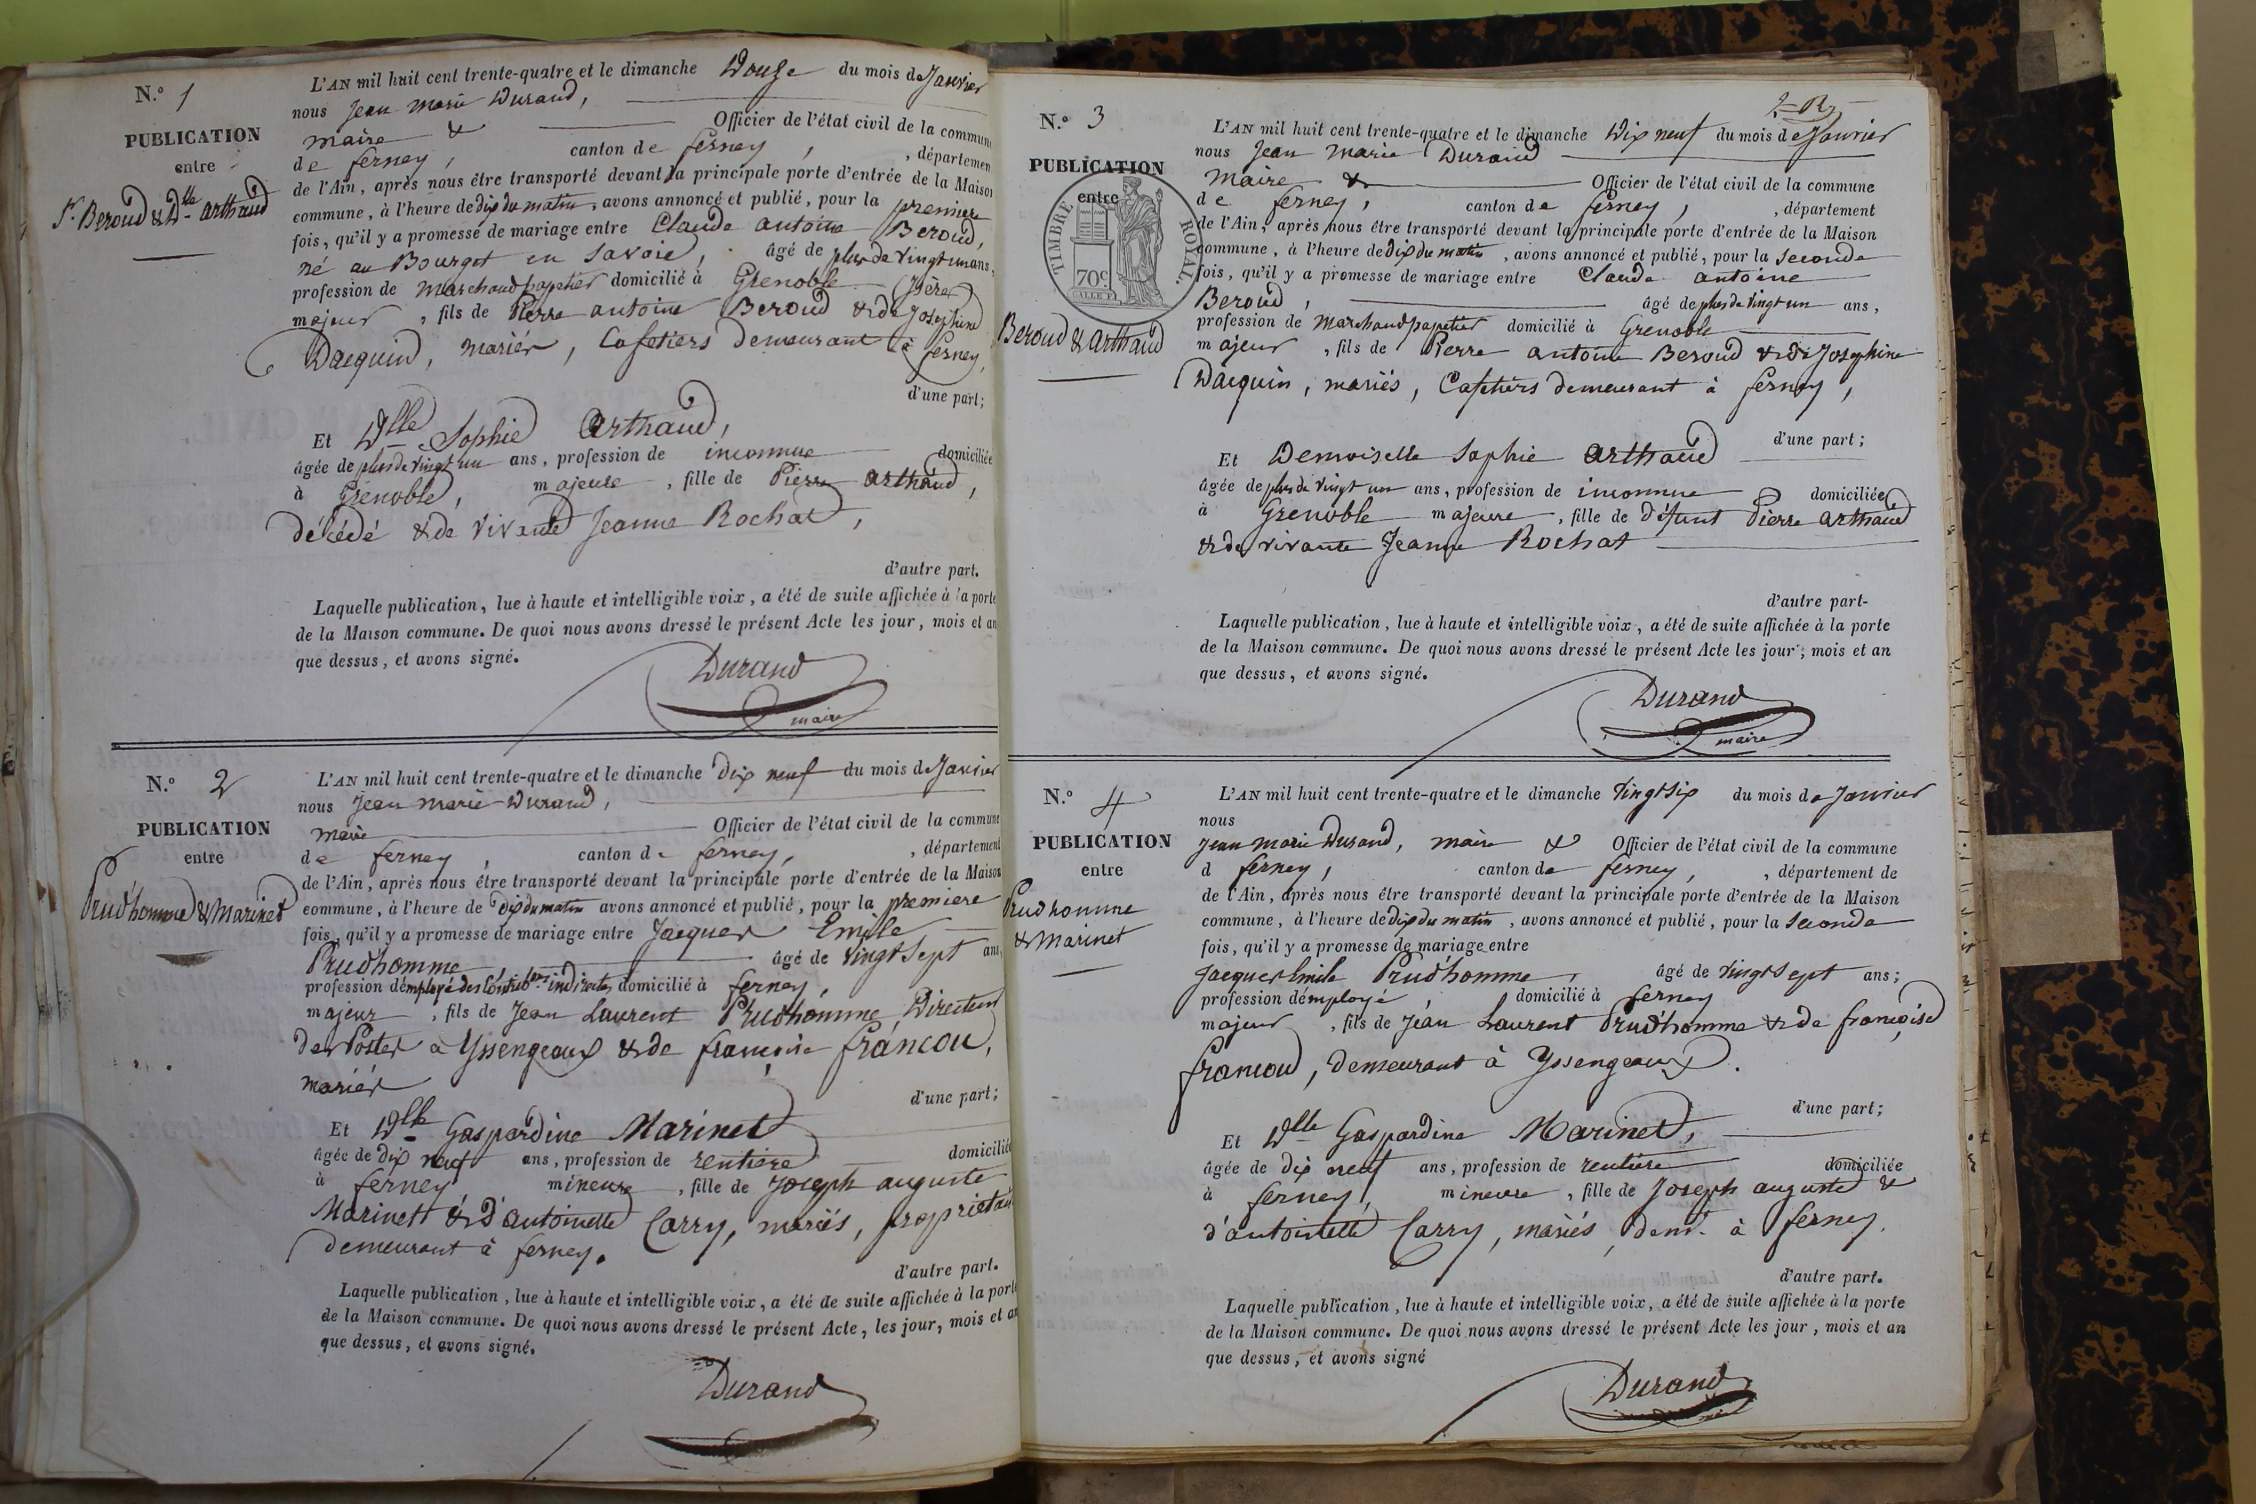 N.° 1
PUBLICATION
entre
Sr. Beroud & Dlle arthaud
L'AN mil huit cent trente-quatre et le dimanche Douze du mois de Janvier
nous Jean Marie Durand,
maire & Officier de l'état civil de la commune
de ferney, canton de ferney, , départemen
de l'Ain, après nous être transporté devant la principale porte d'entrée de la Maison
commune, à l'heure de dix du matin, avons annoncé et publié, pour la premiere
fois, qu'il y a promesse de mariage entre Claude antoine Beroud,
né au Bourget en Savoie, âgé de plus de vingt un ans,
profession de Marchand papetier domicilié à Grenoble (Isère)
majeur , fils de Pierre antoine Beroud & de Josephine
Dacquin, mariés, Cafetiers demeurant à ferney,
d'une part;
Et Dlle Sophie Arthaud,
âgée de plus de vingt un ans, profession de inconnue domiciliée
à Grenoble, majeure , fille de Pierre arthaud,
décédé & de vivante Jeanne Rochat,
d'autre part.
Laquelle publication, lue à haute et intelligible voix, a été de suite affichée à la porte
de la Maison commune. De quoi nous avons dressé le présent Acte les jour, mois et an
que dessus, et avons signé.
Durand
maire
N.° 2
PUBLICATION
entre
Prud'homme & Marinet
L'AN mil huit cent trente-quatre et le dimanche dix neuf du mois de Janvier
nous Jean Marie Durand,
maire Officier de l'état civil de la commune
de ferney, canton de ferney, , département
de l'Ain, après nous être transporté devant la principale porte d'entrée de la Maison
commune, à l'heure de dix du matin avons annoncé et publié, pour la premiere
fois, qu'il y a promesse de mariage entre Jacques Emile
Prud'homme âgé de vingt Sept ans,
profession d'employé des Contrib.ons indirectes domicilié à ferney,
majeur , fils de Jean Laurent Prud'homme, Directeur
des Postes à Yssengeaux & de françoise francou,
mariés
d'une part;
Et Dlle Gaspardine Marinet
âgée de dix neuf ans, profession de rentière domiciliée
à ferney mineure , fille de Joseph auguste
Marinet & d'antoinette Carry, mariés, propriétai
demeurant à ferney.
d'autre part.
Laquelle publication, lue à haute et intelligible voix, a été de suite affichée à la porte
de la Maison commune. De quoi nous avons dressé le présent Acte, les jour, mois et an
que dessus, et avons signé.
Durand
N.° 3
PUBLICATION
entre
TIMBRE ROYAL.
70c.
Beroud & arthaud
L'AN mil huit cent trente-quatre et le dimanche Dix neuf du mois de Janvier
nous Jean Marie Durand
Maire & Officier de l'état civil de la commune
de ferney, canton de ferney, , département
de l'Ain, après nous être transporté devant la principale porte d'entrée de la Maison
commune, à l'heure de dix du matin , avons annoncé et publié, pour la Seconde
fois, qu'il y a promesse de mariage entre Claude antoine
Beroud, âgé de plus de vingt un ans,
profession de Marchand papetier domicilié à Grenoble
majeur , fils de Pierre antoine Beroud & de Josephine
Dacquin, mariés, Cafetiers demeurant à ferney,
d'une part;
Et Demoiselle Sophie arthaud
âgée de plus de vingt un ans, profession de inconnue domiciliée
à Grenoble majeure , fille de défunt Pierre arthaud
& de vivante Jeanne Rochat
d'autre part-
Laquelle publication, lue à haute et intelligible voix, a été de suite affichée à la porte
de la Maison commune. De quoi nous avons dressé le présent Acte les jour, mois et an
que dessus, et avons signé.
Durand
maire
N.° 4
PUBLICATION
entre
Prudhomme
& Marinet
L'AN mil huit cent trente-quatre et le dimanche vingt six du mois de Janvier
nous
Jean Marie Durand, maire & Officier de l'état civil de la commune
d ferney, canton de ferney, , département de
de l'Ain, après nous être transporté devant la principale porte d'entrée de la Maison
commune, à l'heure de dix du matin , avons annoncé et publié, pour la Seconde
fois, qu'il y a promesse de mariage entre
Jacques Emile Prud'homme, âgé de vingt Sept ans;
profession d'employé domicilié à ferney
majeur , fils de Jean Laurent Prud'homme & de françoise
francou, demeurant à Yssengeaux.
d'une part;
Et Dlle Gaspardine Marinet,
âgée de dix neuf ans, profession de rentière domiciliée
à ferney, mineure , fille de Joseph auguste &
d'antoinette Carry, mariés, demt. à ferney.
d'autre part.
Laquelle publication, lue à haute et intelligible voix, a été de suite affichée à la porte
de la Maison commune. De quoi nous avons dressé le présent Acte les jour, mois et an
que dessus, et avons signé
Durand